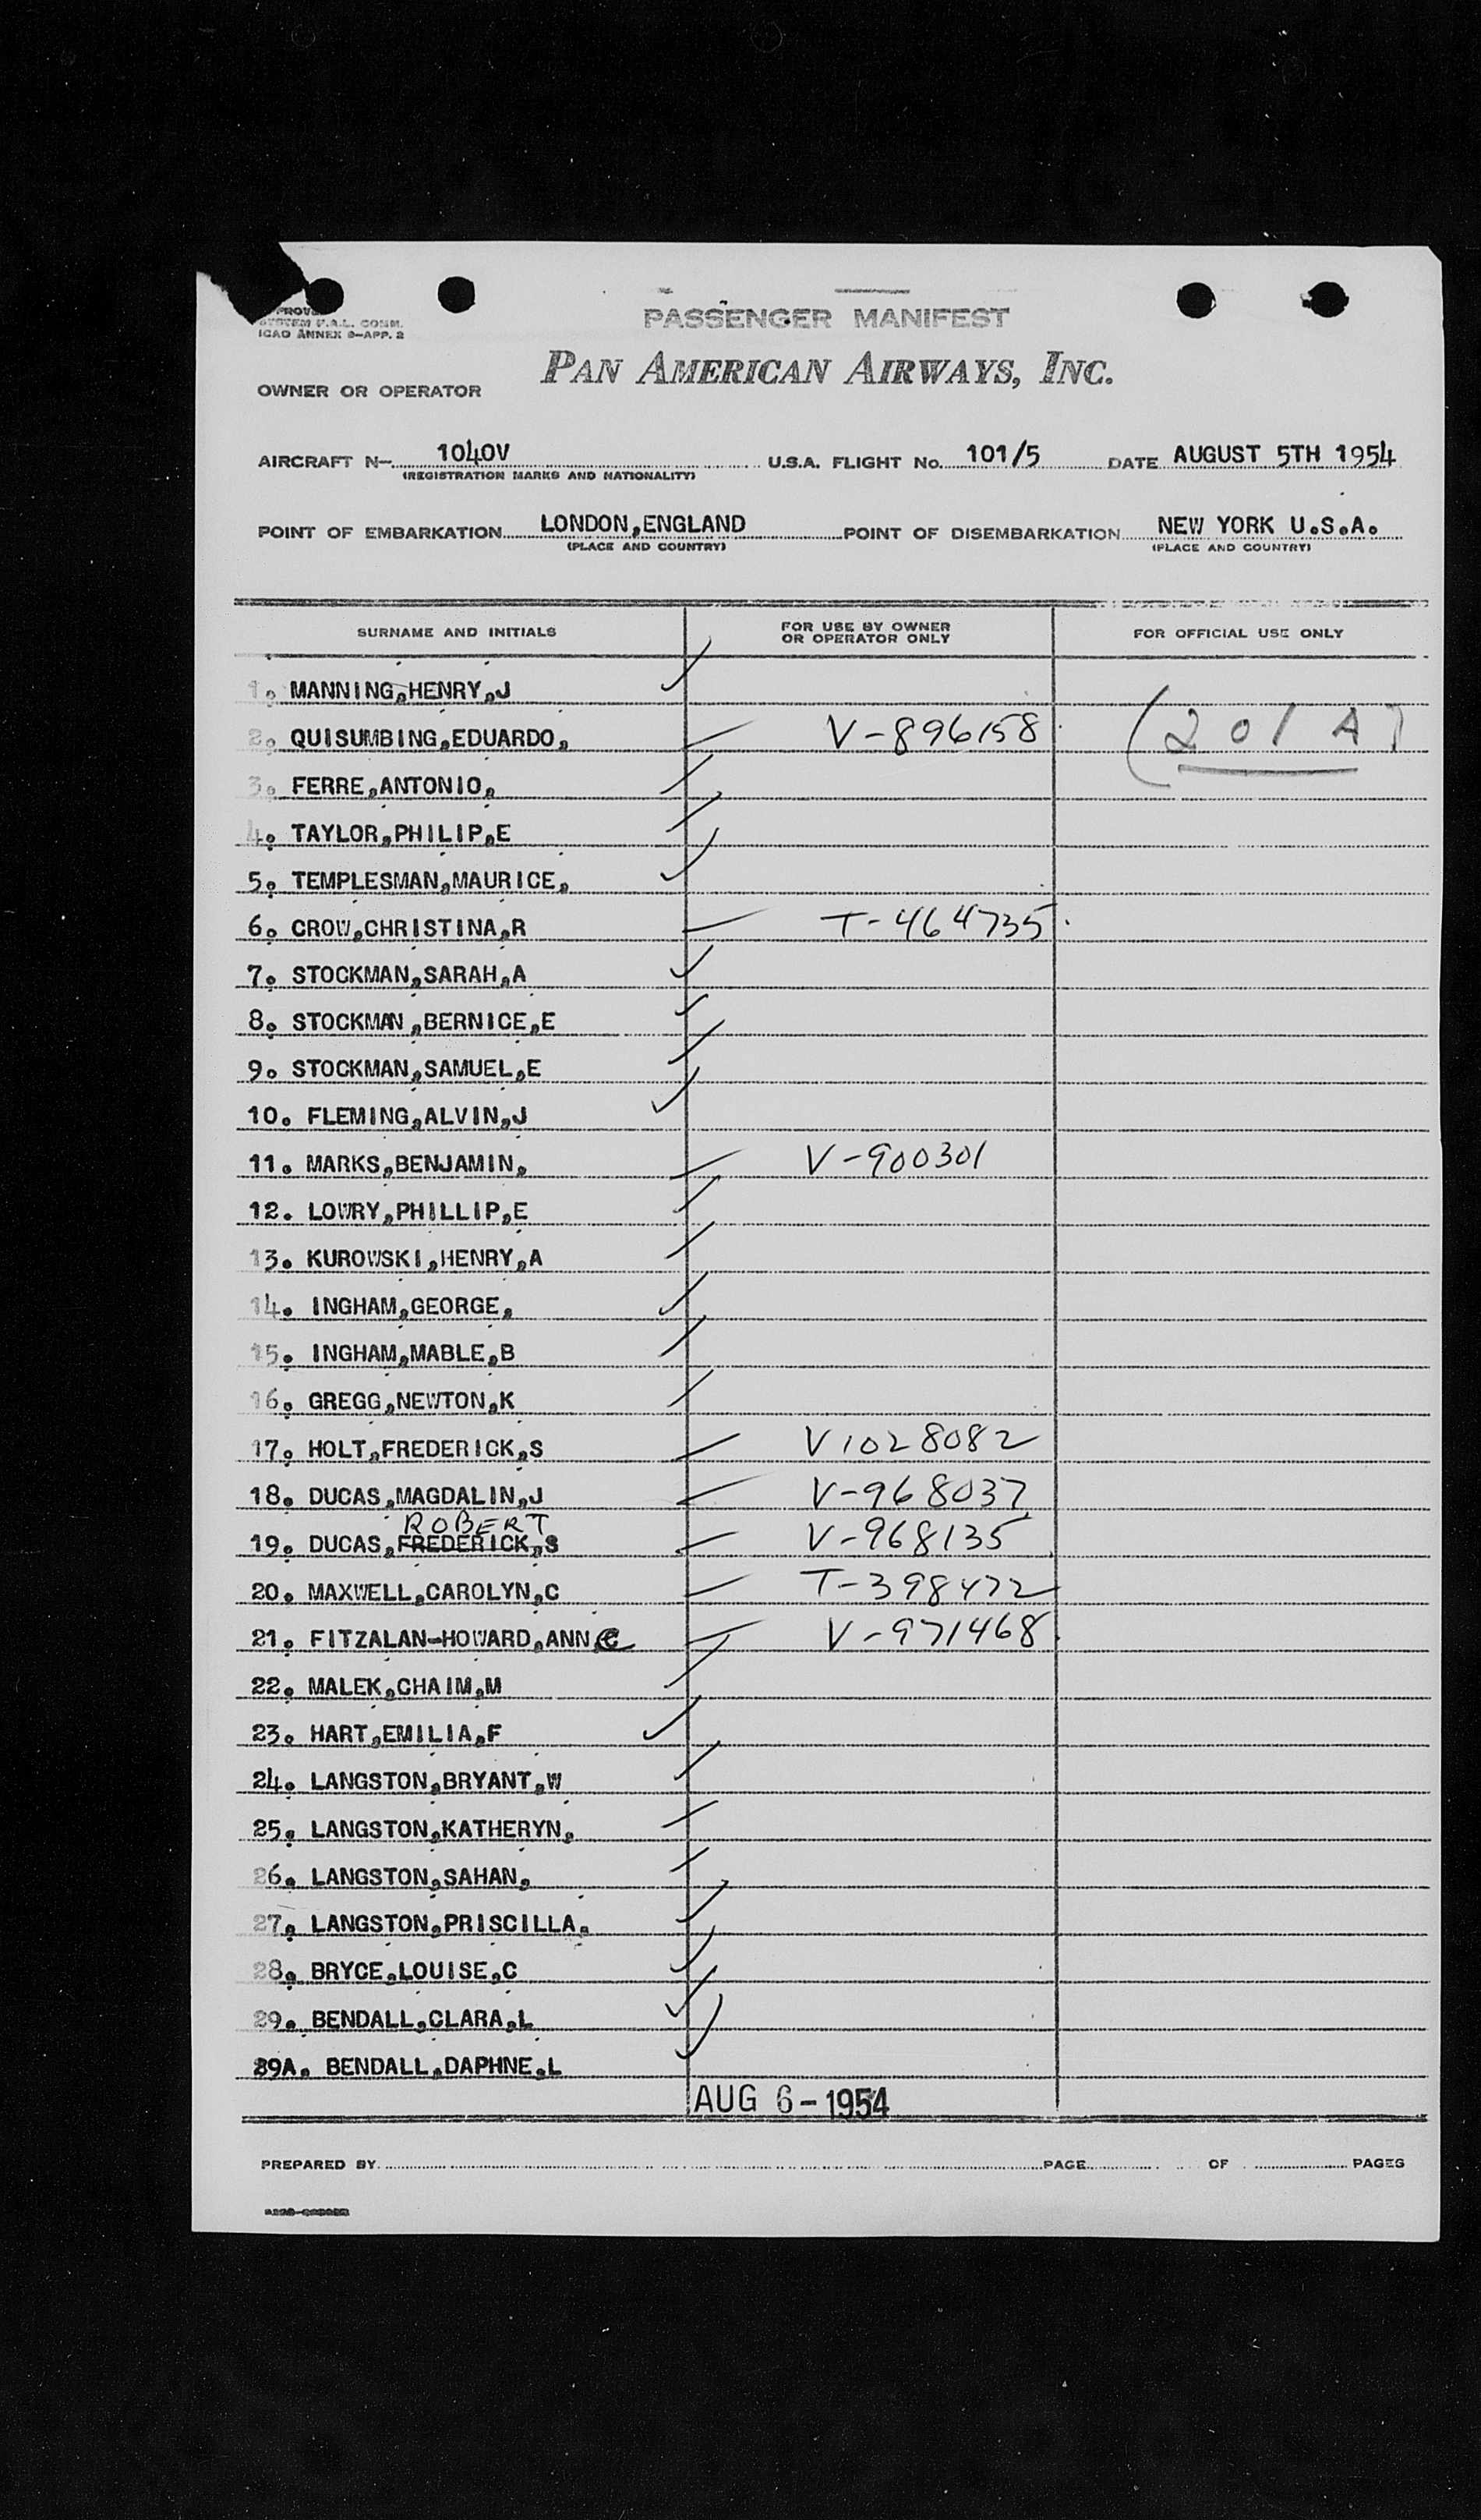 PASSENGER MANIFEST
SYSTEM U.A.L. COMM.
ICAO ANNEX 9—APP. 2
PAN AMERICAN AIRWAYS, INC.
OWNER OR OPERATOR
AIRCRAFT N— 1040V U.S.A. FLIGHT No. 101/5 DATE AUGUST 5TH 1954
(REGISTRATION MARKS AND NATIONALITY)
POINT OF EMBARKATION LONDON,ENGLAND POINT OF DISEMBARKATION NEW YORK U.S.A.
(PLACE AND COUNTRY) (PLACE AND COUNTRY)
SURNAME AND INITIALS FOR USE BY OWNER OR OPERATOR ONLY FOR OFFICIAL USE ONLY
1. MANNING,HENRY,J ✓
2. QUISUMBING,EDUARDO, V-896158 (201A)
3. FERRE,ANTONIO,
4. TAYLOR,PHILIP,E
5. TEMPLESMAN,MAURICE, ✓
6. CROW,CHRISTINA,R T-464735
7. STOCKMAN,SARAH,A ✓
8. STOCKMAN,BERNICE,E ✓
9. STOCKMAN,SAMUEL,E ✓
10. FLEMING,ALVIN,J ✓
11. MARKS,BENJAMIN, V-900301
12. LOWRY,PHILLIP,E
13. KUROWSKI,HENRY,A
14. INGHAM,GEORGE, ✓
15. INGHAM,MABLE,B
16. GREGG,NEWTON,K
17. HOLT,FREDERICK,S V1028082
18. DUCAS,MAGDALIN,J V-968037
ROBERT
19. DUCAS,FREDERICK,S V-968135
20. MAXWELL,CAROLYN,C T-398472
21. FITZALAN-HOWARD,ANNE V-971468
22. MALEK,CHAIM,M
23. HART,EMILIA,F ✓
24. LANGSTON,BRYANT,W
25. LANGSTON,KATHERYN,
26. LANGSTON,SAHAN,
27. LANGSTON,PRISCILLA,
28. BRYCE,LOUISE,C ✓
29. BENDALL,CLARA,L ✓
29A. BENDALL,DAPHNE,L ✓
AUG 6-1954
PREPARED BY PAGE OF PAGES